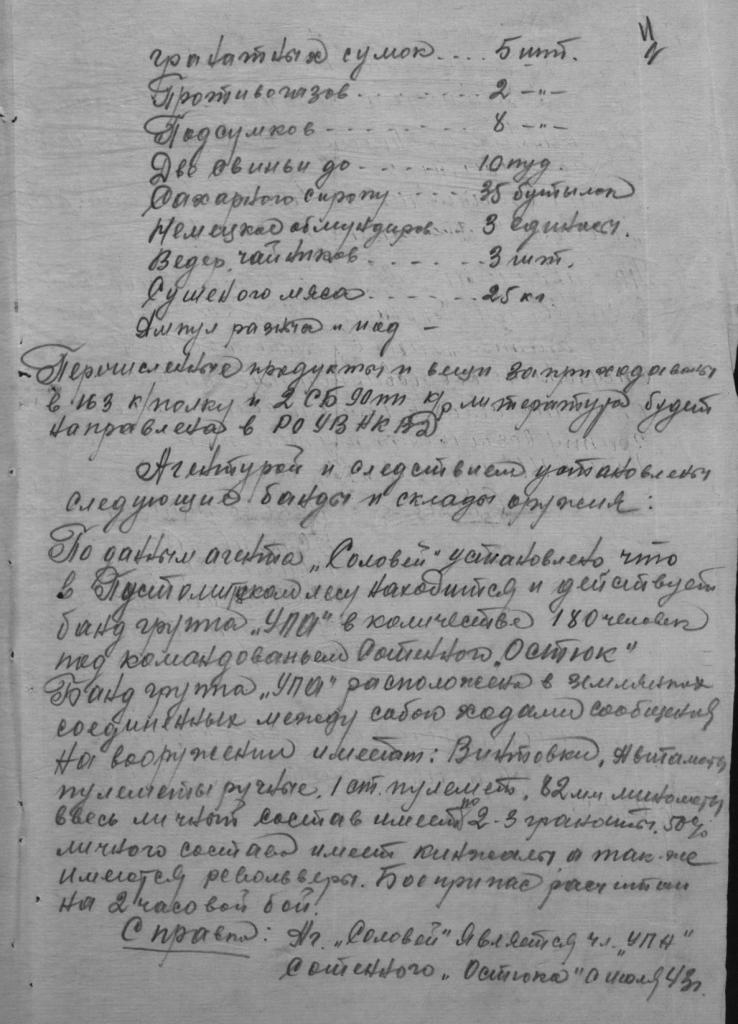 гранатных сумок .... 5 шт.
Противогазов ........ 2 -"-
Подсумков ........ 8 -"-
Две свиньи до ...... 10 пуд.
Сахарного сиропу ..... 35 бутылок
Немецкое обмундиров. 3 единицы.
Ведер, чайников ...... 3 шт.
Сушеного мяса ...... 25 кг.
Ампул и иод —
Перечисленные продукты и вещи заприходаваны
в 163 к/полку и 2 СБ 90 пп литература будет
направлена в РО УВ НКВД
Агентурой и следствием установлены
следующие банды и склады оружия:
По даным агента „Соловей" установлено что
в Пустомитском лесу находится и действует
банд группа „УПА" в количестве 180 человек
под командованьем Сотенного „Остюк"
Банд группа „УПА" расположена в землянках
соединенных между сабою ходами сообщения
на вооружении имеет: Винтовки, Автаматы
пулеметы ручные, 1 ст. пулемет, 82 мм минометы
ввесь личный состав имеет по 2-3 гранаты, 50%
личного состава имеет кинжалы а так-же
имеются револьверы. Боеприпас расчитан
на 2 часовой бой.
Справка: Аг. „Соловей" Является чл. „УПА"
Сотенного „Остюка" с июля 43 г.